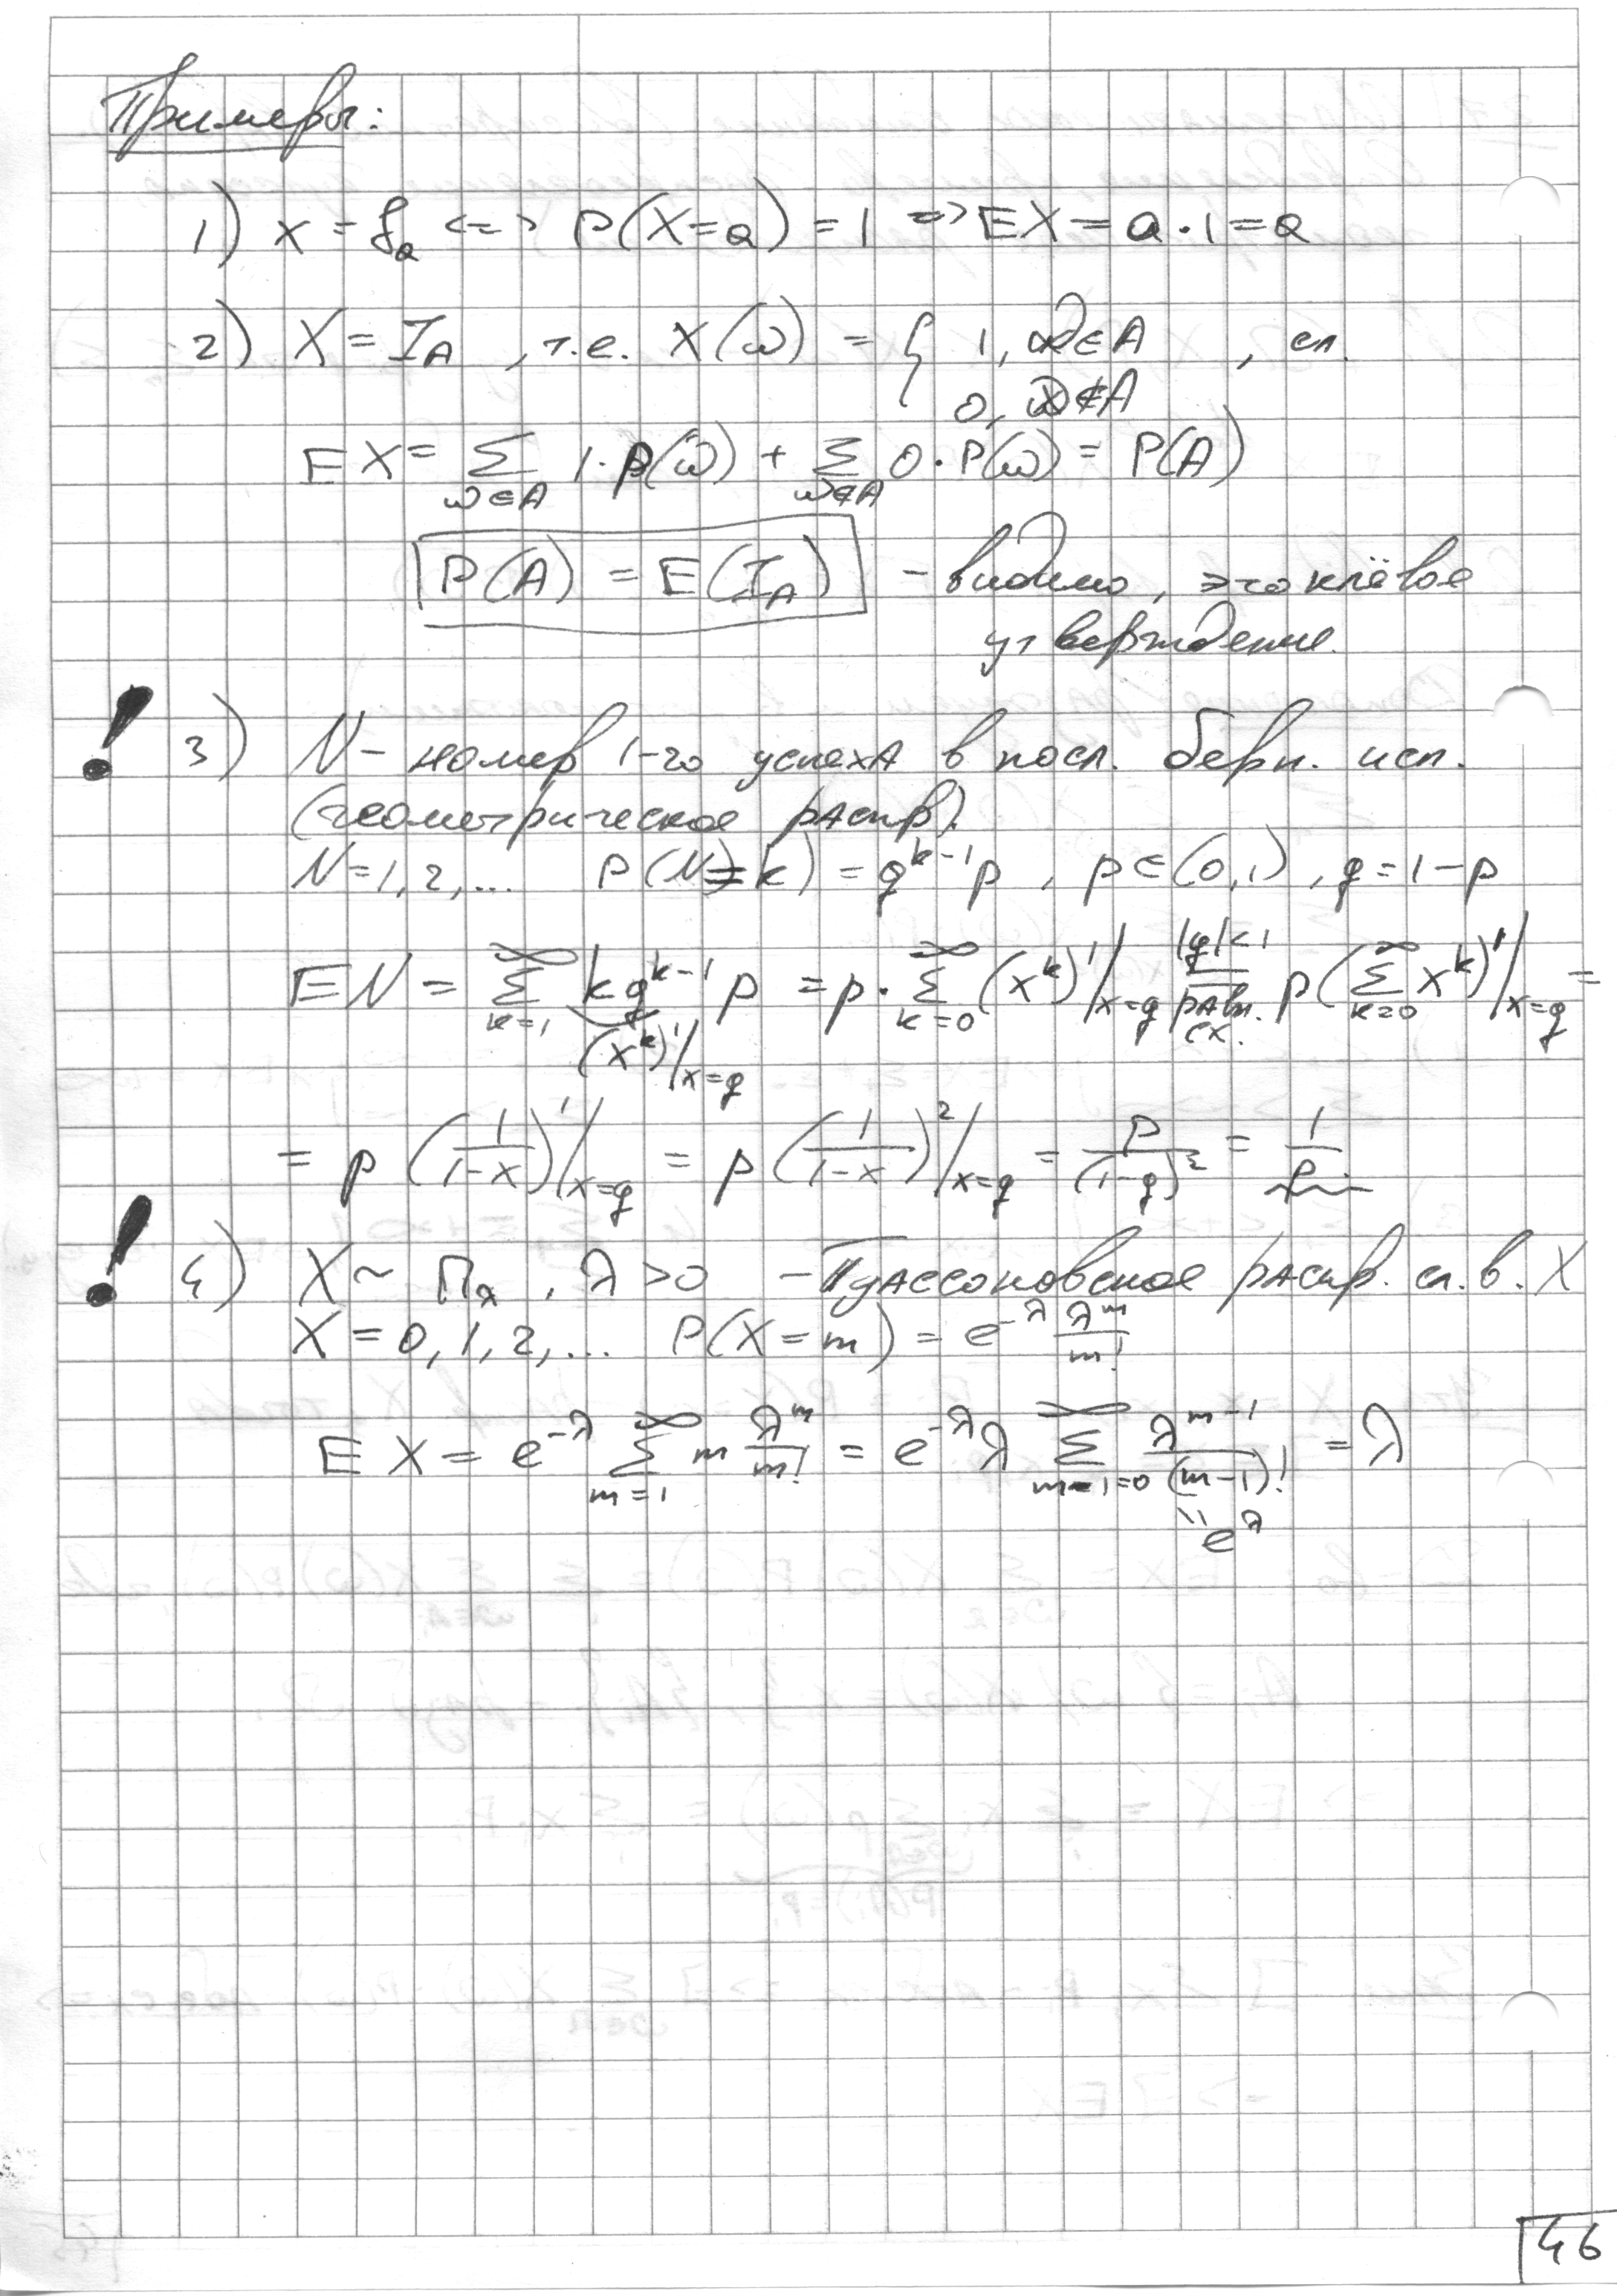 Примеры:
1) x = δ_a <=> P(X=a) = 1 => EX = a·1 = a
2) X = I_A, т.е. X(ω) = { 1, ω∈A , сл.
0, ω∉A
EX = Σ_{ω∈A} 1·p(ω) + Σ_{ω∉A} 0·P(ω) = P(A)
P(A) = E(I_A) – видимо, это клёвое
утверждение.
! 3) N – номер 1-го успеха в посл. берн. исп.
(геометрическое распр).
N=1,2,... P(N=k) = q^{k-1}p, p∈(0,1), q=1-p
EN = Σ_{k=1}^{∞} kq^{k-1} p = p·Σ_{k=0}^{∞} (x^k)'|_{x=q} = p(Σ_{k=0}^{∞} x^k)'|_{x=q} =
|q|<1 равн. сх.
(x^k)'|_{x=q}
= p (1/(1-x))'|_{x=q} = p (1/(1-x))^2|_{x=q} = p/(1-q)^2 = 1/p
! 4) X ~ Π_λ, λ>0 – Пуассоновское распр. сл. в. X
X = 0,1,2,... P(X=m) = e^{-λ} λ^m/m!
EX = e^{-λ} Σ_{m=1}^{∞} m λ^m/m! = e^{-λ}λ Σ_{m-1=0}^{∞} λ^{m-1}/(m-1)! = λ
" e^λ
46